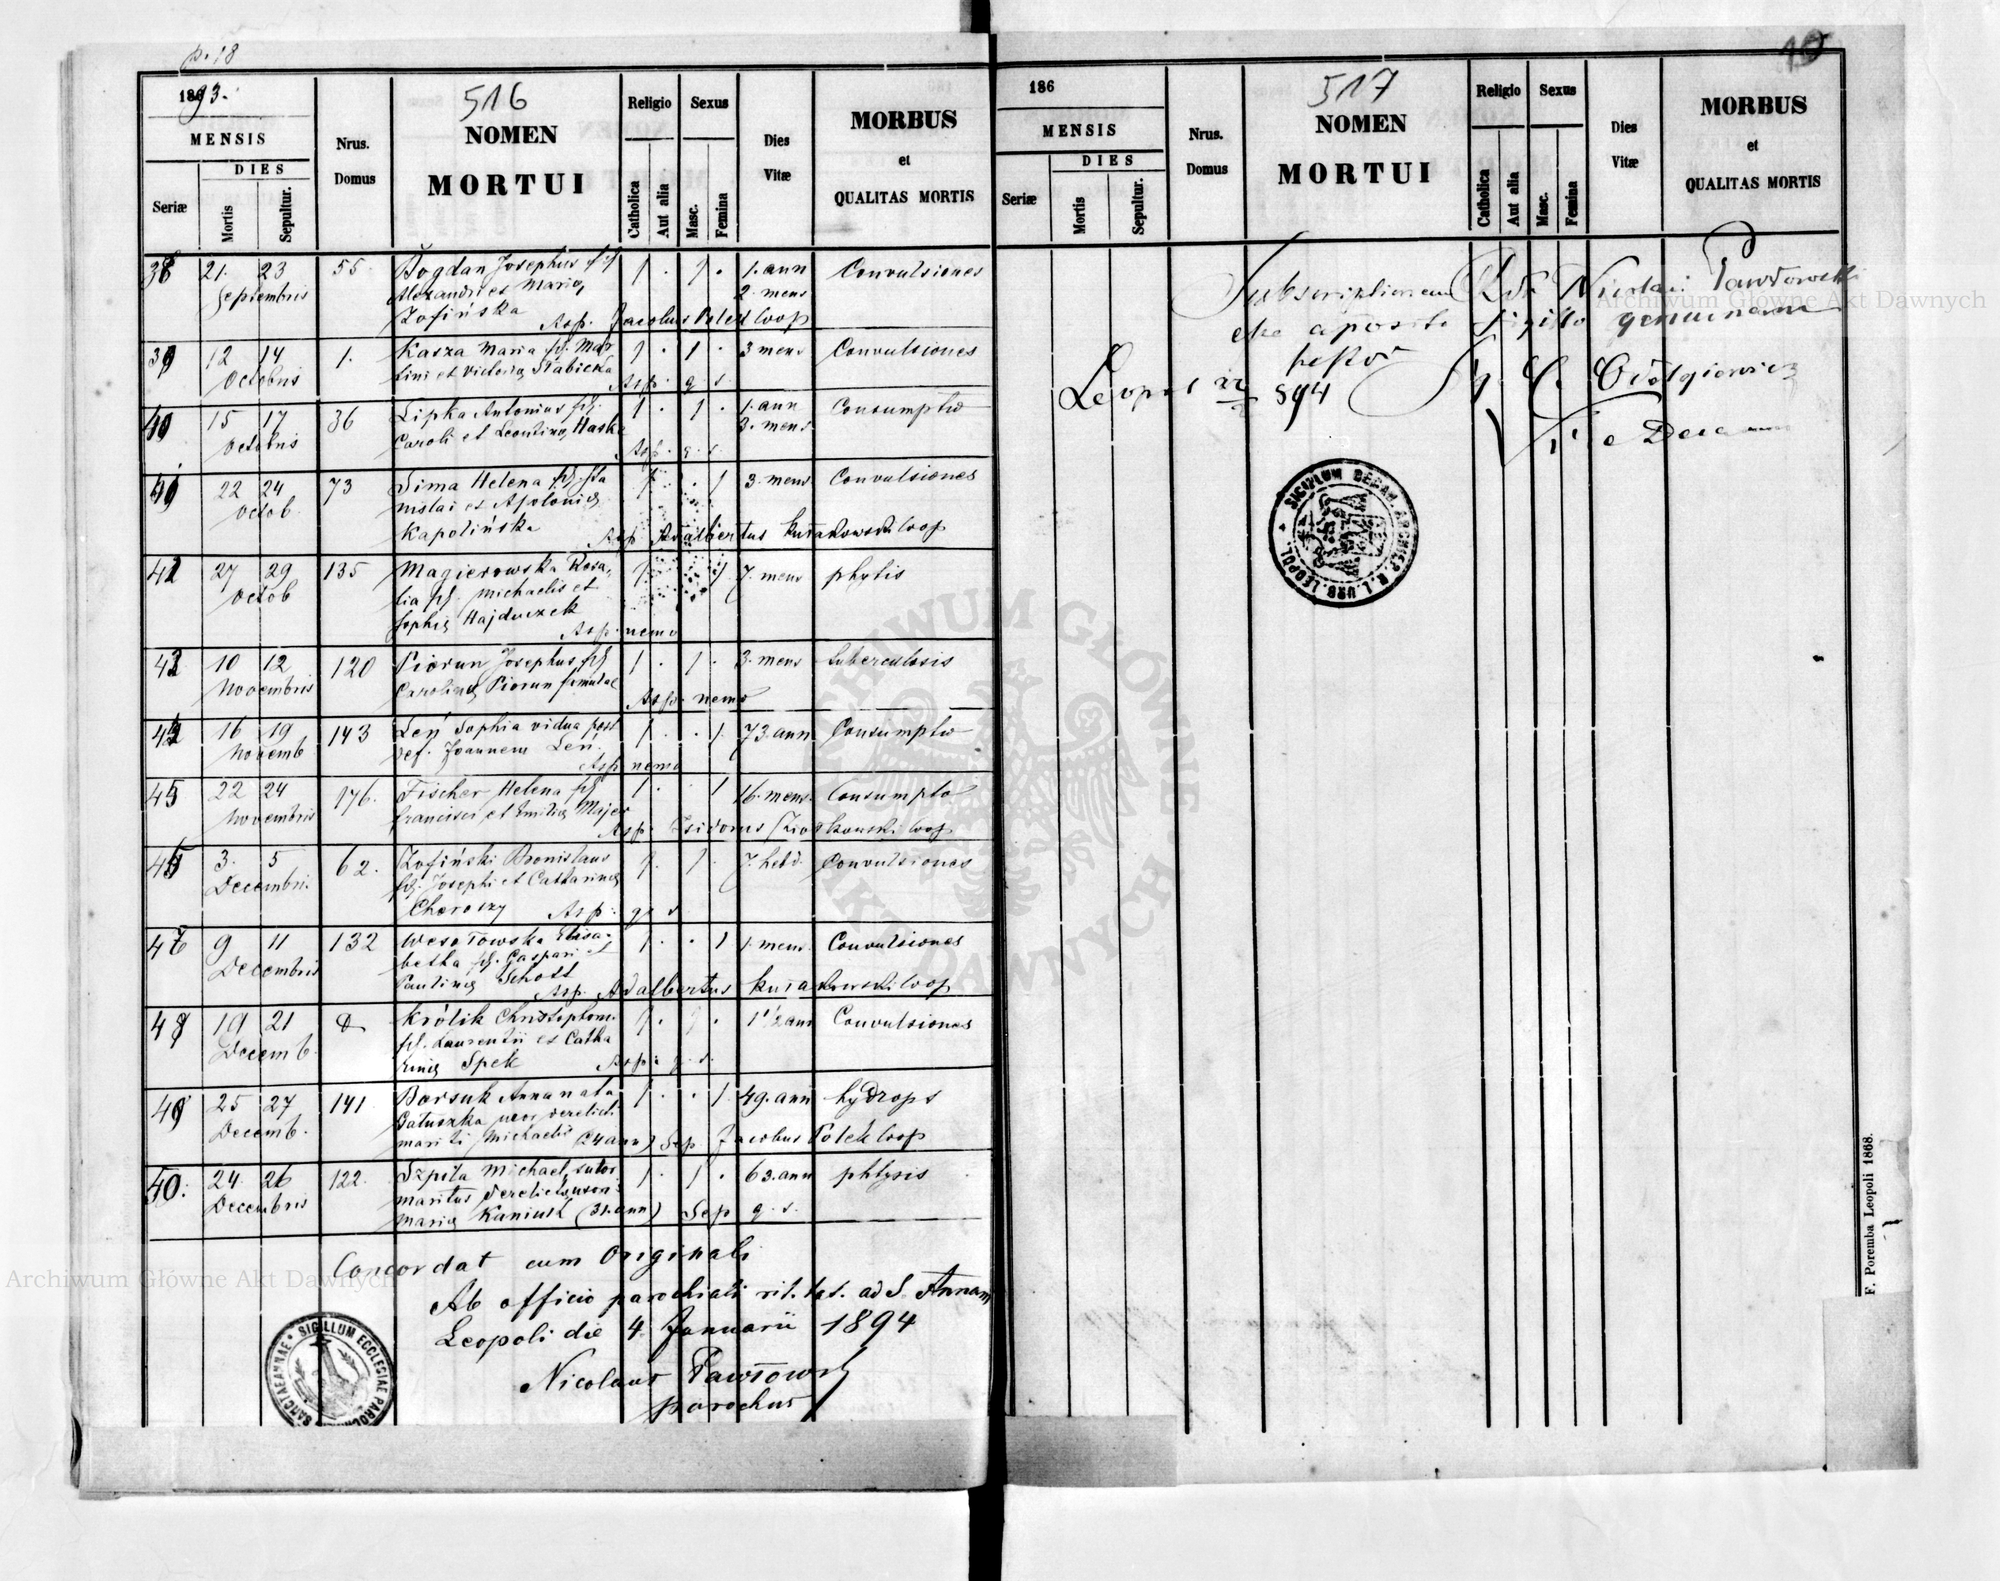 p. 18
1893.
516
MENSIS
DIES
Seriæ
Mortis
Sepultur.
Nrus.
Domus
NOMEN
MORTUI
Religio
Catholica
Aut alia
Sexus
Masc.
Femina
Dies
Vitæ
MORBUS
et
QUALITAS MORTIS
38 21. 23 55. Bogdan Josephus fil 1. 1. 1. ann Convulsiones
Septembris Alexandri et Mariæ 2. mens
Zofińska Asp. Jacobus Polek loop
39 12 14 1. Kasza Maria fil. Mar 1. 1. 3 mens Convulsiones
Octobris tini et Victoriæ Słabicka
Asp. q. s.
40 15 17 36 Lipka Antonius fil. 1. 1. 1. ann Consumptio
Octobris Caroli et Leontinæ Haska 3. mens
Asp. q. s.
41 22 24 73 Sima Helena fil. Sta 1. 1 3. mens Convulsiones
Octob nislai et Apoloniæ
Kapolińska Asp Adalbertus loop
42 27 29 135 Magierowska Rosa, 1. 1. 7. mens phytis
Octob lia fil. Michaelis et
Sophiæ Hajduczek
Asp. nemo
43 10 12 120 Piorun Josephus fil 1. 1. 3. mens tuberculosis
Novembris Carolinæ Piorun famulae
Asp. nemo
44 16 19 143 Leń Sophia vidua post 1. 1. 73. ann Consumptio
Novemb def. Joannem Leń.
Asp nemo
45 22 24 176. Fischer Helena fil 1. 1 16. mens. Consumptio
Novembris Francisci et Emiliæ Majer
Asp. Isidorus loop
46 3. 5 62. Zofiński Bronislaus 1. 1. 7. hebd. Convulsiones
Decembri. fil. Josephi et Catharinæ
Choroszy Asp. q. s
47 9 11 132 Wesołowska Elisa- 1. 1 1. mens. Convulsiones
Decembris betha fil. Caspari et
Paulinæ Schott
Asp. Adalbertus loop
48 19 21 Królik Christophorus 1. 1. 1 1/2 ann Convulsiones
Decemb. fil. Laurentii et Catha
rinæ Spek Asp. q. s.
49 25 27 141 Borsuk Anna nata 1. 1. 49. ann hydrops
Decemb. Gałuszka uxor derelicti
mariti Michaelis (24 ann) Sep Jacobus Polek loop
50. 24 26 122. Szpila Michael, sutor 1. 1. 63. ann phtysis
Decembris maritus derelictæ uxoris
Mariæ Kaniuk (31. ann) Sep q. s.
Concordat cum Originali
Ab officio parochiali rit. lat. ad S. Annam
Leopoli die 4. Januarii 1894
Nicolaus Pawłowski
parochus
SIGILLUM ECCLESIAE PAROCH
SANCTAE ANNAE
186
517
MENSIS
DIES
Seriæ
Mortis
Sepultur.
Nrus.
Domus
NOMEN
MORTUI
Religio
Catholica
Aut alia
Sexus
Masc.
Femina
Dies
Vitæ
MORBUS
et
QUALITAS MORTIS
Subscriptionem Rdi Nicolai Pawłowski
aposito sigillo genuinam
testor
Leopol 894
Decanus
SIGILLUM DECAN. ARCHIEP. R. L. URB. LEOPOL.
F. Poremba Leopoli 1868.
Archiwum Główne Akt Dawnych
Archiwum Główne Akt Dawnych
ARCHIWUM GŁÓWNE AKT DAWNYCH